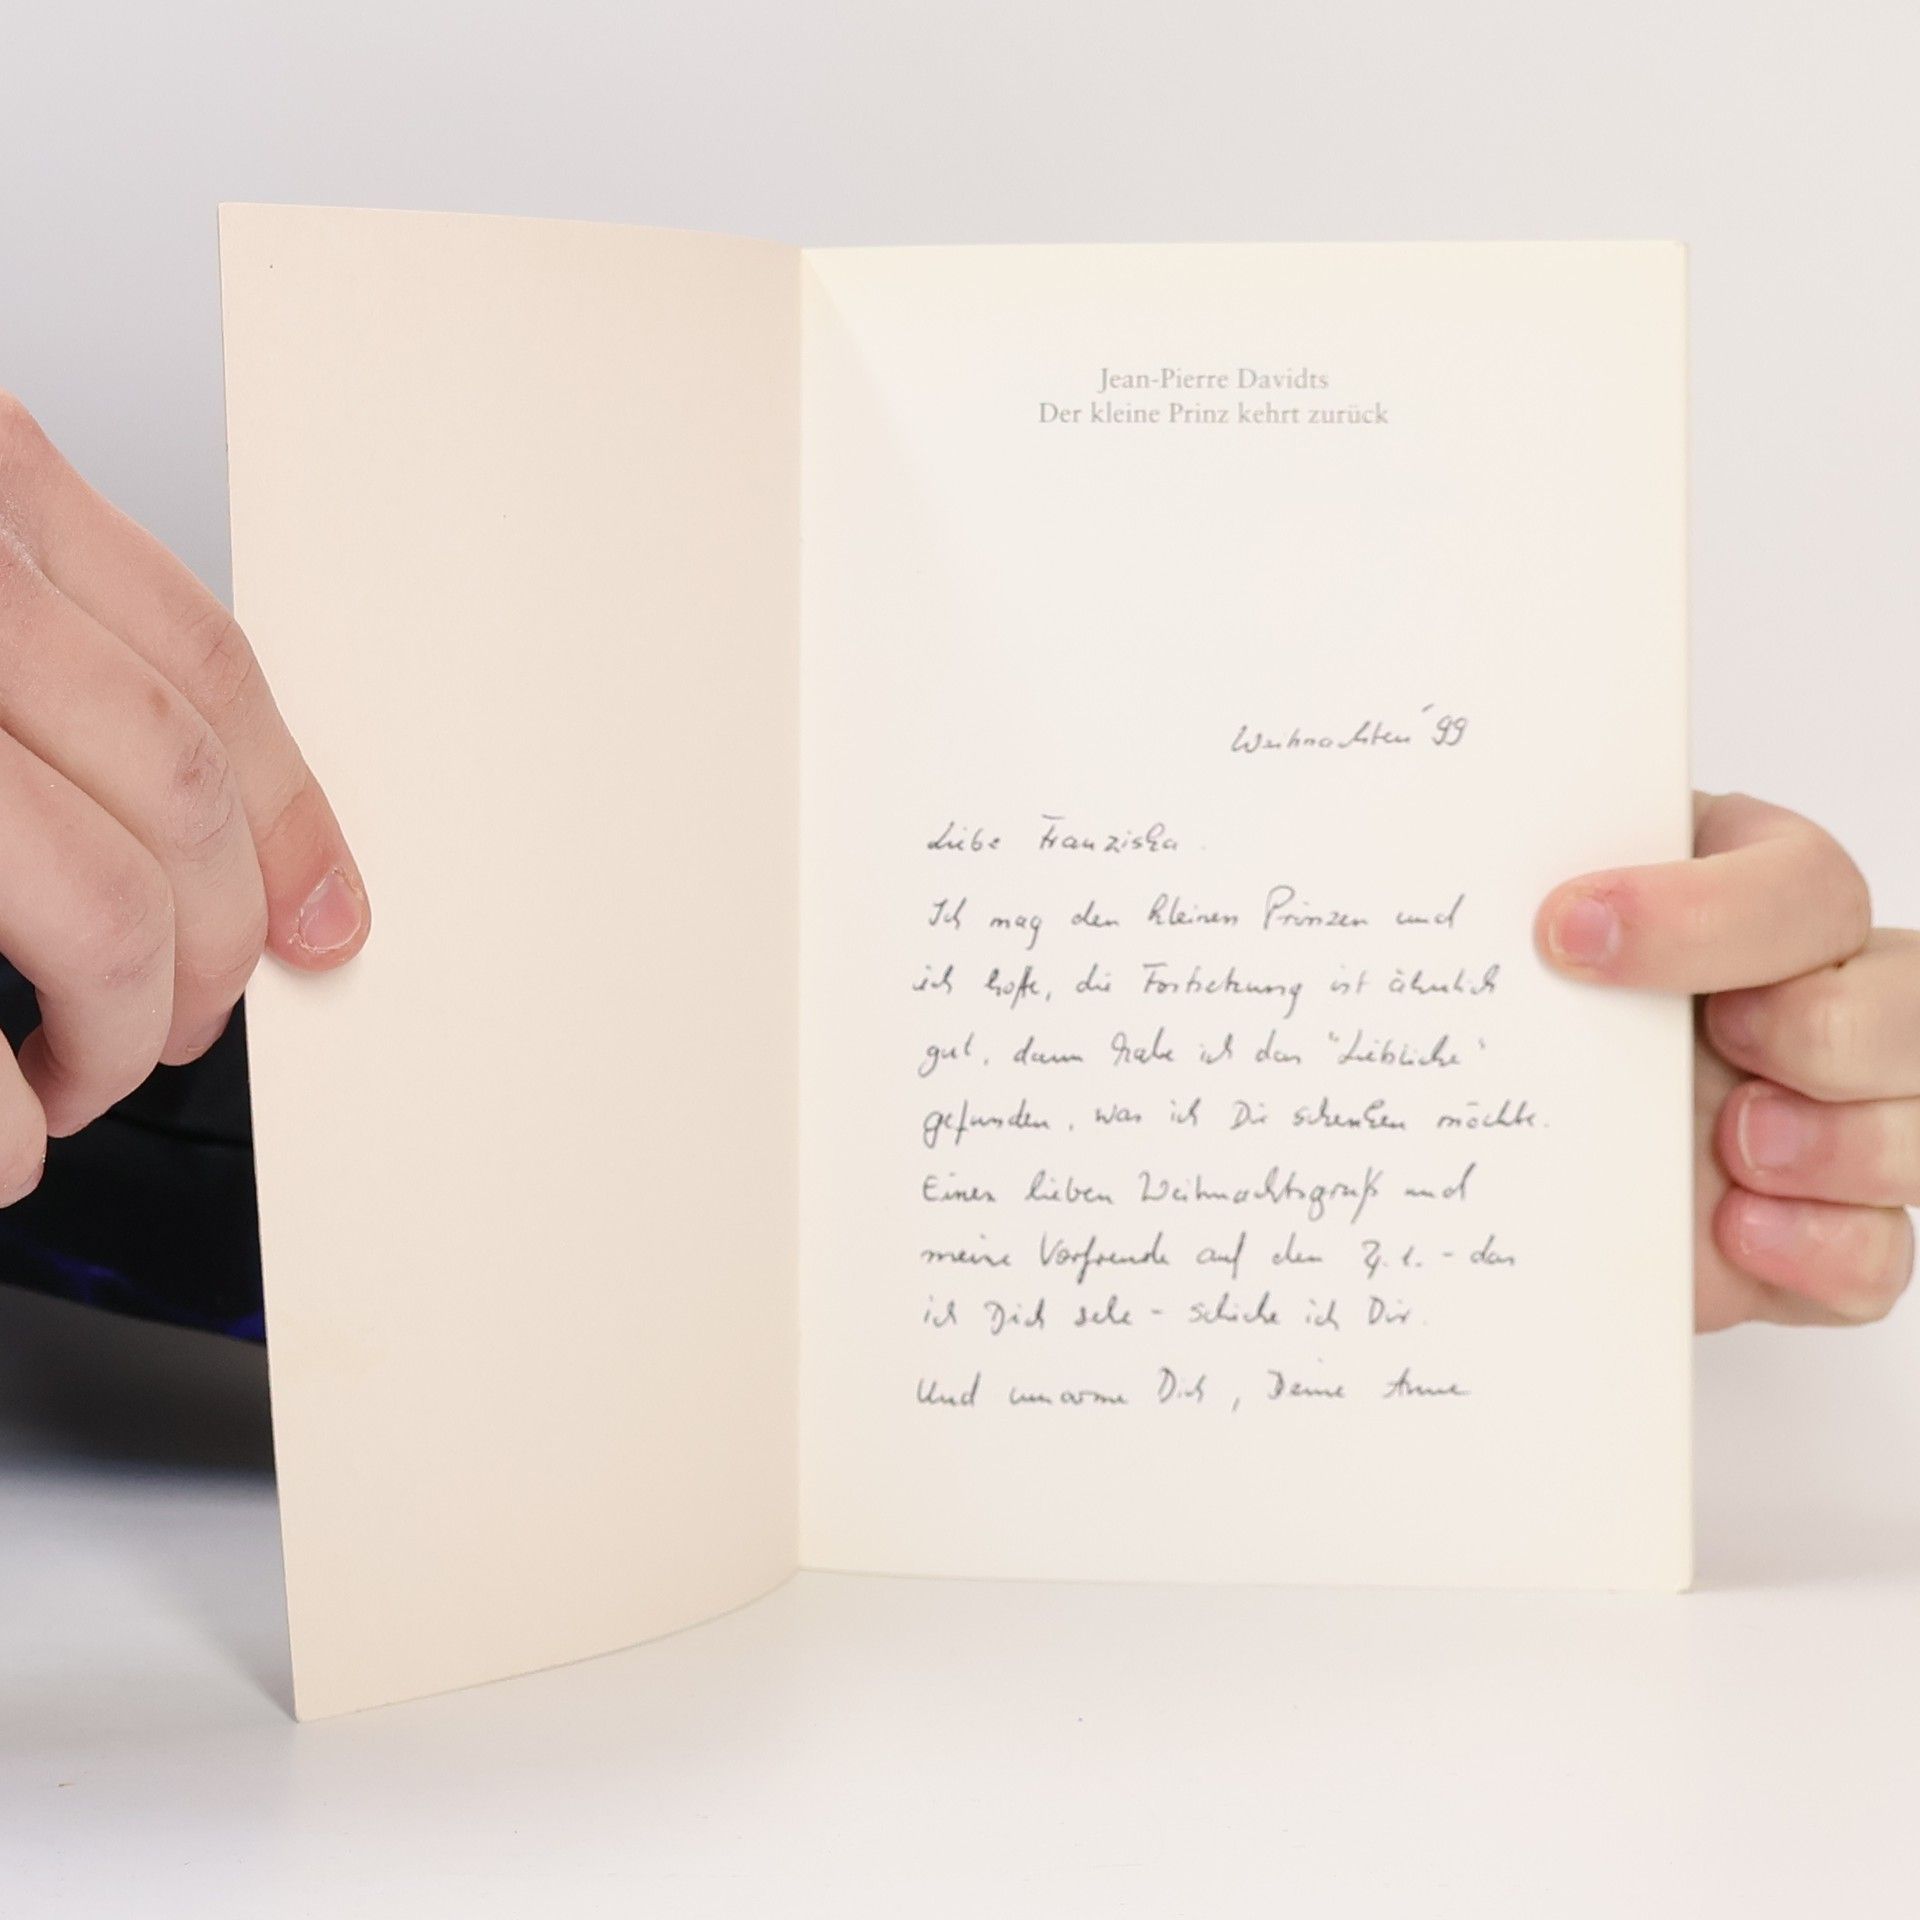 Jean-Pierre Davidts
Der kleine Prinz kehrt zurück
Weihnachten '99
Liebe Franziska.
Ich mag den kleinen Prinzen und
ich hoffe, die Fortsetzung ist ähnlich
gut, dann habe ich das "Liebliche"
gefunden, was ich Dir schenken möchte.
Einen lieben Weihnachtsgruß und
meine Vorfreude auf den - das
ich Dich sehe - schicke ich Dir.
Und umarme Dich, Deine Anne